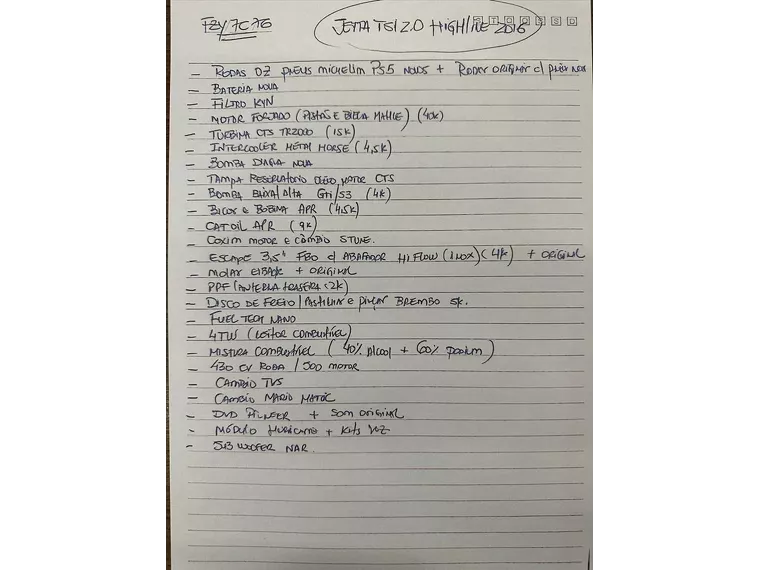 FZY7C76
JETTA TSI 2.0 HIGHLINE 2016
S T Q Q S S D
- RODAS OZ pneus michelim PS5 Novos + Rodas original c/ pneu novos
- BATERIA NOVA
- FILTRO KYN
- MOTOR FORJADO (PISTÃES E BIELA MAHLE) (40K)
- TURBINA CTS (15K)
- INTERCOOLER METAL HORSE (4,5K)
- BOMBA NOVA
- TAMPA RESERVATORIO OLEO MOTOR CTS
- BOMBA BAIXA/ALTA Gti/S3 (4K)
- BICOS E BOBINA APR (4,5K)
- CATOIL APR (9K)
- COXIM MOTOR E CÂMBIO STUNE.
- ESCAPE 3,5" FBO c/ ABAFADOR HI FLOW (INOX) (4K) + ORIGINAL
- MOLAS EIBACK + ORIGINAL
- PPF / TRASEIRA <2K)
- DISCO DE FREIO / PASTILHAS e pinças BREMBO 5K.
- FUEL TECH NANO
- 4TW (LEITOR COMBUSTÍVEL)
- MISTURA COMBUSTÍVEL (40% Alcool + 60% podium)
- 430 CV RODA / 500 MOTOR
- CAMBIO TVS
- CAMBIO MARIO
- DVD + SOM ORIGINAL
- MÓDULO HURICANE + Kits VOZ
- SUB WOOFER NAR.